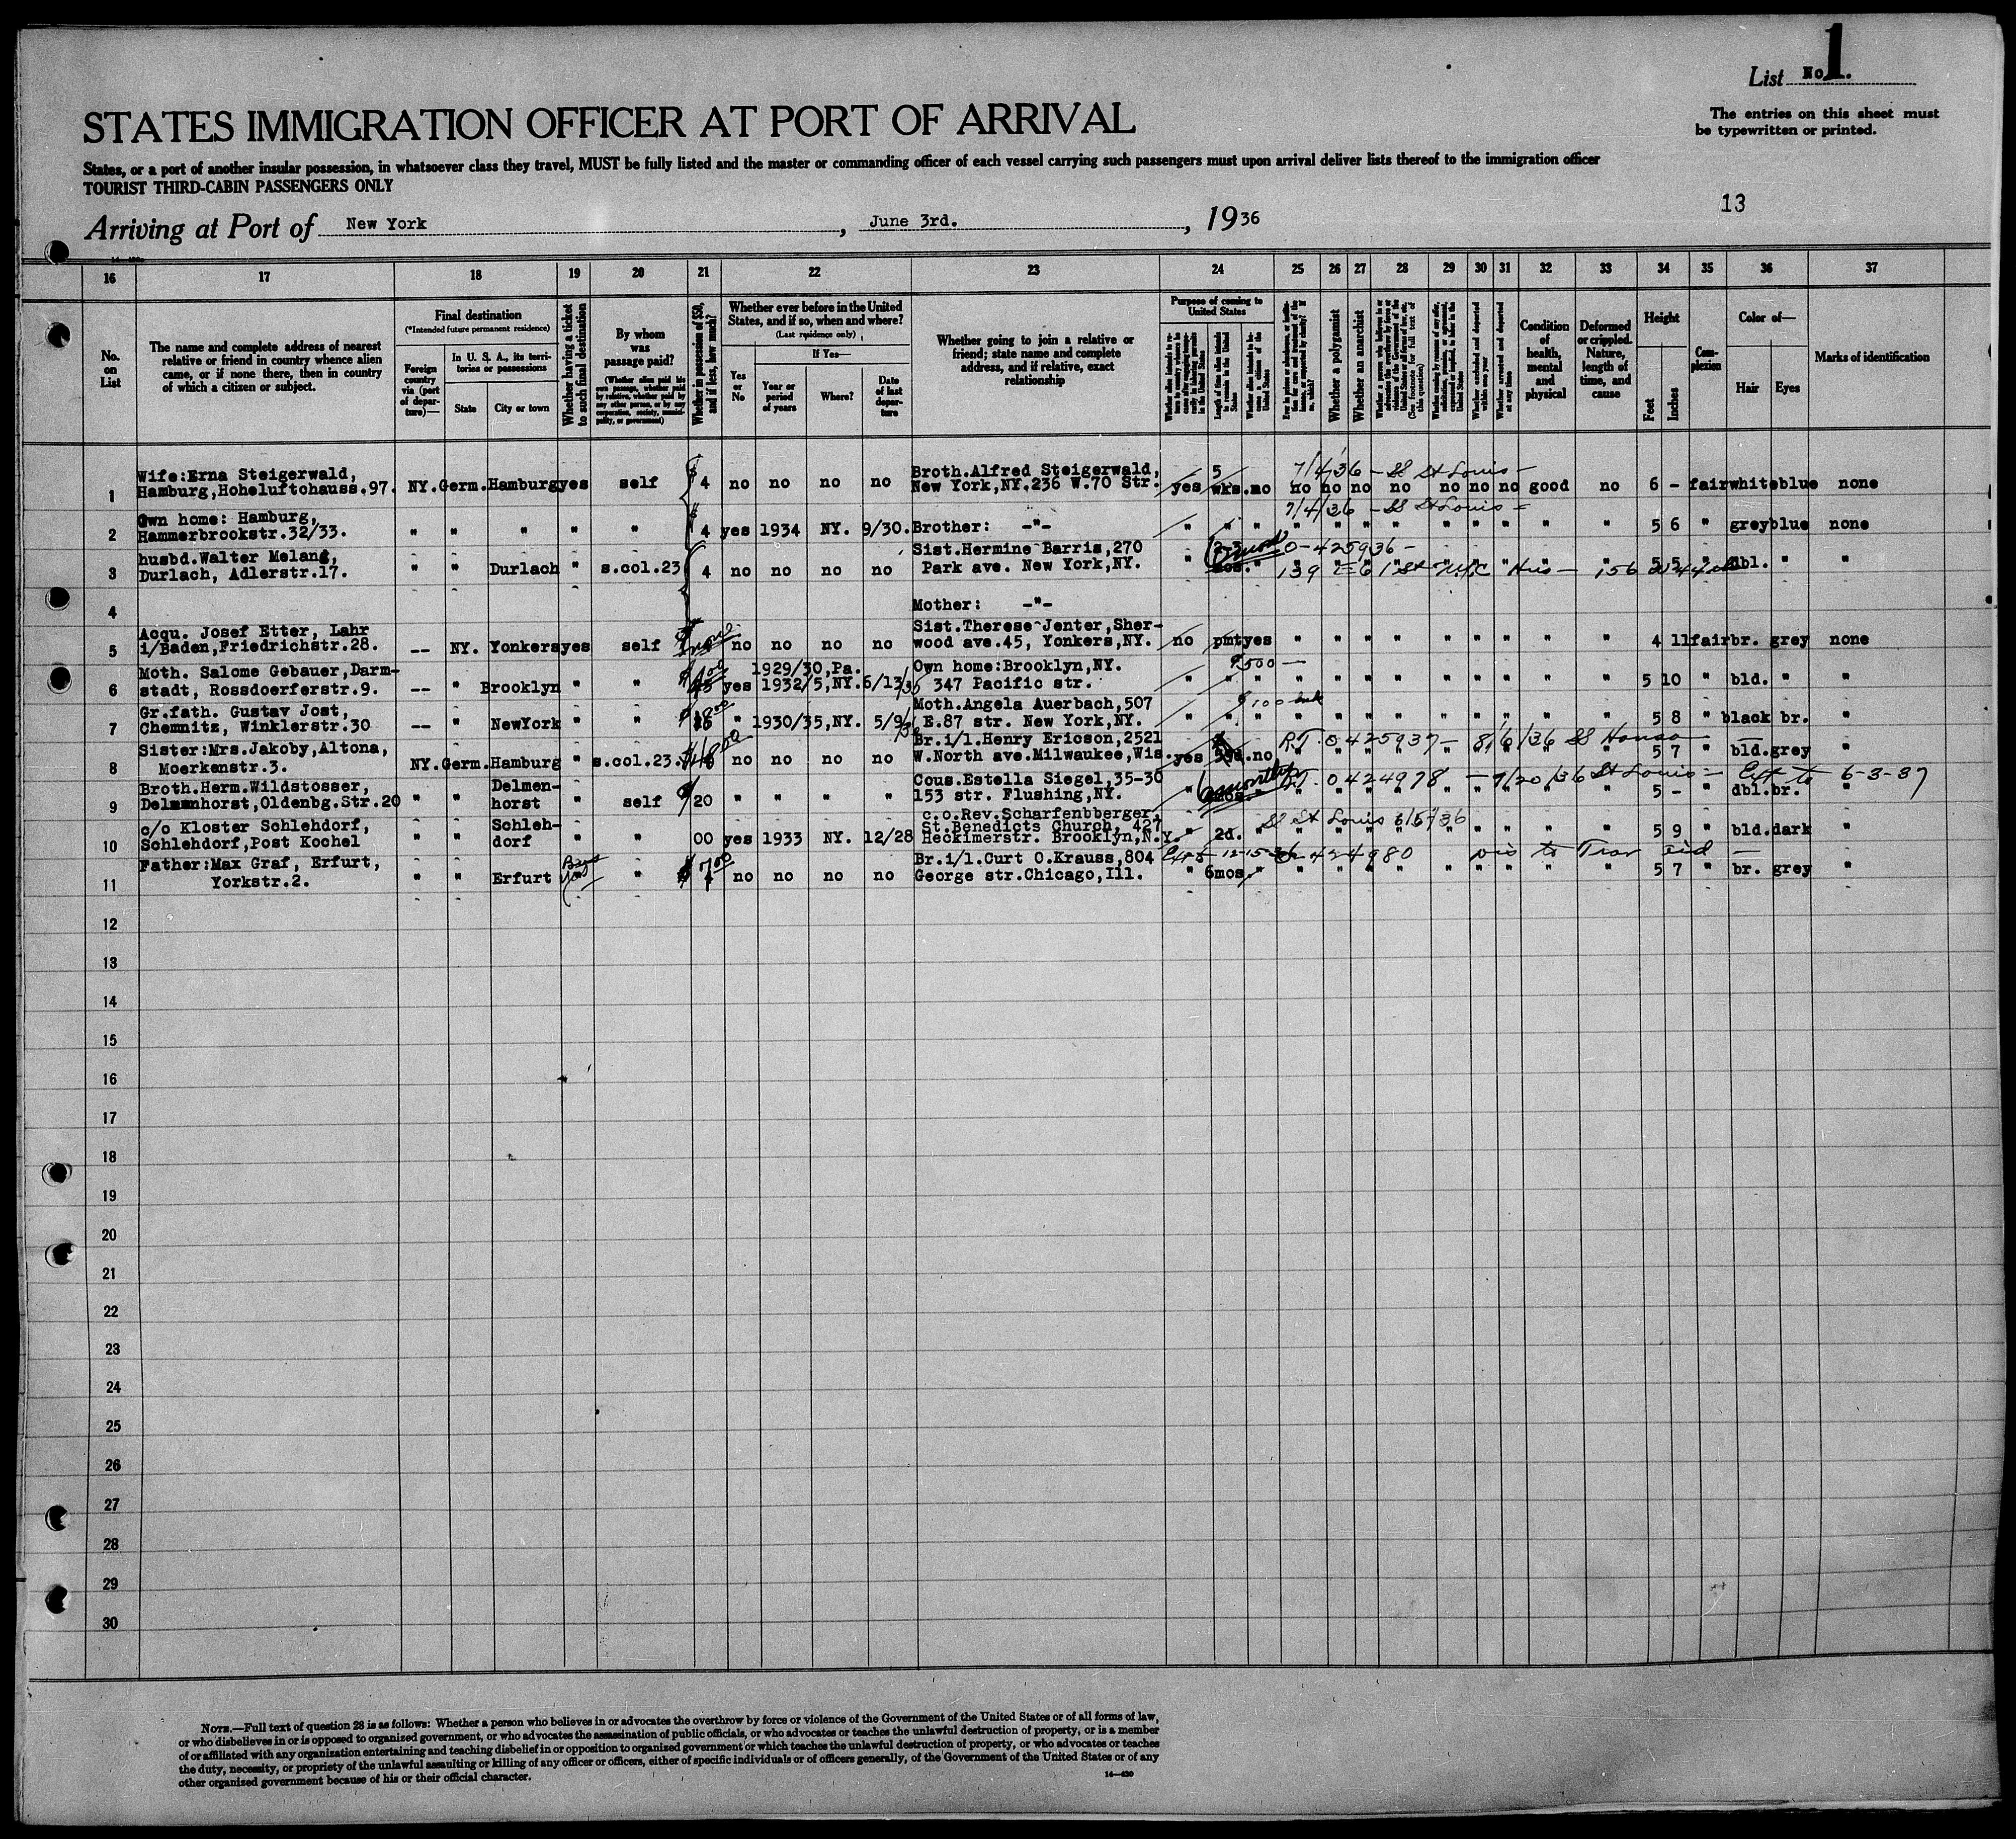 List No. 1.
The entries on this sheet must
be typewritten or printed.
STATES IMMIGRATION OFFICER AT PORT OF ARRIVAL
States, or a port of another insular possession, in whatsoever class they travel, MUST be fully listed and the master or commanding officer of each vessel carrying such passengers must upon arrival deliver lists thereof to the immigration officer
TOURIST THIRD-CABIN PASSENGERS ONLY
13
Arriving at Port of New York, June 3rd., 1936
16 17 18 19 20 21 22 23 24 25 26 27 28 29 30 31 32 33 34 35 36 37
No.
on
List
The name and complete address of nearest
relative or friend in country whence alien
came, or if none there, then in country
of which a citizen or subject.
Final destination
(*Intended future permanent residence)
Foreign
country
via (port
of depar-
ture)—
In U. S. A., its terri-
tories or possessions
State
City or town
Whether having a ticket
to such final destination
By whom
was
passage paid?
Whether in possession of $50,
and if less, how much?
Whether ever before in the United
States, and if so, when and where?
(Last residence only)
Yes
or
No
If Yes—
Year or
period
of years
Where?
Date
of last
depar-
ture
Whether going to join a relative or
friend; state name and complete
address, and if relative, exact
relationship
Purpose of coming to
United States
Whether a polygamist
Whether an anarchist
Condition
of
health,
mental
and
physical
Deformed
or crippled.
Nature,
length of
time, and
cause
Height
Feet
Inches
Com-
plexion
Color of—
Hair
Eyes
Marks of identification
Wife:Erna Steigerwald, Broth.Alfred Steigerwald, 5 7/4/36 - SS St Louis -
1 Hamburg,Hoheluftchauss.97. NY.Germ.Hamburg yes self $ 4 no no no no New York,NY.236 W.70 Str. yes wks. no no no no no no no no good no 6 - fair white blue none
Own home: Hamburg, 7/4/36 - SS St Louis -
2 Hammerbrookstr.32/33. " " " " " $ 4 yes 1934 NY. 9/30. Brother: -"- " " " " " " " " " " " " 5 6 " grey blue none
husbd.Walter Melang, Sist.Hermine Barris,270 0-425936-
3 Durlach, Adlerstr.17. " " Durlach " s.col.23 4 no no no no Park ave. New York,NY. " mos. " 5 5 " dbl. " "
4 Mother: -"-
Acqu. Josef Etter, Lahr Sist.Therese Jenter,Sher-
5 i/Baden,Friedrichstr.28. -- NY. Yonkers yes self no no no no wood ave.45, Yonkers,NY. no pmt yes " " " " " " " " " 4 11 fair br. grey none
Moth. Salome Gebauer,Darm- 1929/30,Pa. Own home:Brooklyn,NY. $500 -
6 stadt, Rossdoerferstr.9. -- " Brooklyn " " yes 1932/5,NY. 6/13/35 347 Pacific str. " " " " " " " " " " " " 5 10 " bld. " "
Gr.fath. Gustav Jost, Moth.Angela Auerbach,507
7 Chemnitz, Winklerstr.30 -- " NewYork " " " 1930/35,NY. 5/9/35 E.87 str. New York,NY. " " " " " " " " " " " " 5 8 " black br. "
Sister:Mrs.Jakoby,Altona, Br.i/l.Henry Ericson,2521 RT. 0425937- 8/6/36 SS Hansa
8 Moerkenstr.3. NY.Germ.Hamburg " s.col.23. no no no no W.North ave.Milwaukee,Wis. yes no " " " " " " " " " 5 7 " bld. grey "
Broth.Herm.Wildstosser, Delmen- Cous.Estella Siegel,35-30 6 months RT. 0424978 - 7/20/36 St Louis - Ext to 6-3-37
9 Delmenhorst,Oldenbg.Str.20 " " horst " self $ 20 " " " " 153 str. Flushing,NY. " mos. " " " " " " " " " " 5 - " dbl. br. "
c/o Kloster Schlehdorf, Schleh- c.o.Rev.Scharfenbberger, SS St Louis 6/5/36
St.Benedicts Church, 427
10 Schlehdorf,Post Kochel " " dorf " " 00 yes 1933 NY. 12/28 Heckimerstr. Brooklyn,N.Y. " 2d. " " " " " " " " " " 5 9 " bld. dark "
Father:Max Graf, Erfurt, $ 7.00 Br.i/l.Curt O.Krauss,804 Ext 12-15-36 424980
11 Yorkstr.2. " " Erfurt " no no no no George str.Chicago,Ill. " 6mos. " " " " " " " " " " 5 7 " br. grey "
12
13
14
15
16
17
18
19
20
21
22
23
24
25
26
27
28
29
30
NOTE.—Full text of question 28 is as follows: Whether a person who believes in or advocates the overthrow by force or violence of the Government of the United States or of all forms of law,
or who disbelieves in or is opposed to organized government, or who advocates the assassination of public officials, or who advocates or teaches the unlawful destruction of property, or is a member
of or affiliated with any organization entertaining and teaching disbelief in or opposition to organized government or which teaches the unlawful destruction of property, or who advocates or teaches
the duty, necessity, or propriety of the unlawful assaulting or killing of any officer or officers, either of specific individuals or of officers generally, of the Government of the United States or of any
other organized government because of his or their official character.
14—430